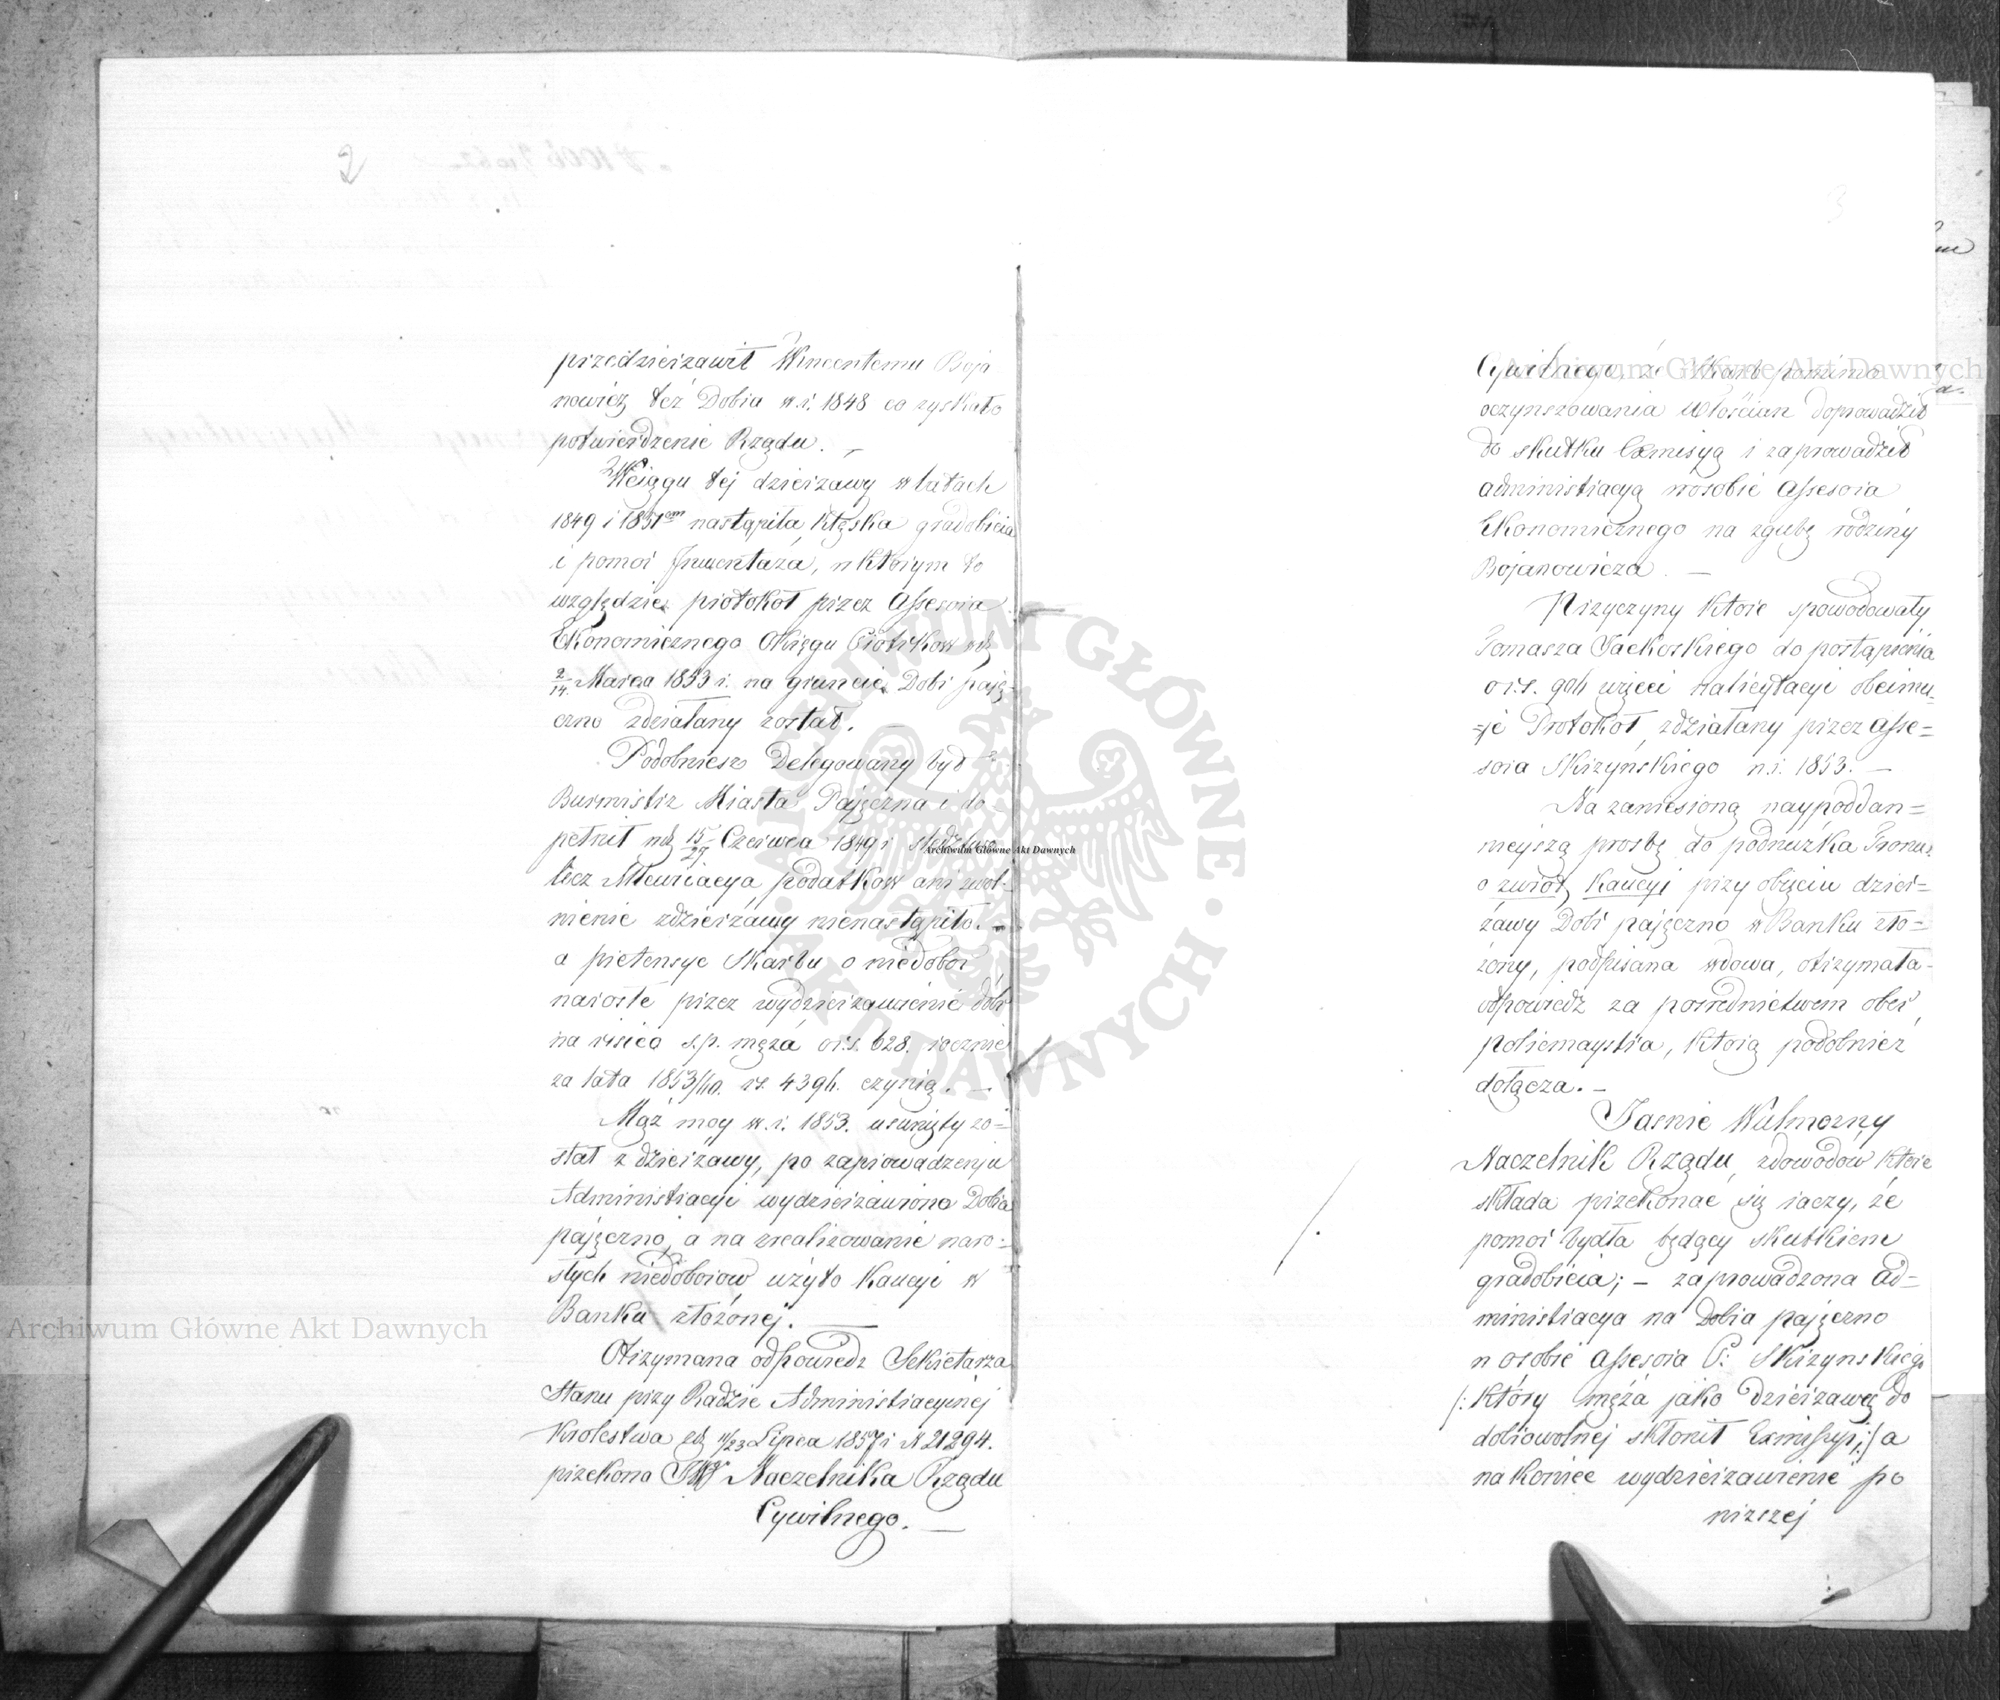 2
przedzierzawił Wincentemu Boja
nowicz też Dobra w.r. 1848 co zyskało
potwierdzenie Rządu. —
Wciągu tej dzierzawy w latach
1849 i 1851 nastąpiła klęska gradobicia
i pomor Inwentaża, w którym to
względzie protokoł przez Assesora
Ekonomicznego Okręgu Piotrkow
2/14 Marca 1853 r. na gruncie Dobr pajęczno
zdziałany został. —
Podobniesz Delegowany był
Burmistrz Miasta Pajęczna i do-
pełnił 15/27 Czerwca 1849 r
lecz Allewiacya podatkow ani zwol-
nienie zdzierżawy nienastąpiło. —
a pretensye Skarbu o niedobor
narosłe przez wydzierzawienie dóbr
na risico s.p. męża o r.s. 628. rocznie
za lata 1853/60. rs. 4396. czynią. —
Mąż moy w.r. 1853. usunięty zo-
stał z dzierzawy, po zaprowadzeniu
Administracyi wydzierzawiono Dobra
pajęczno, a na zrealizowanie naro-
słych niedoborow użyto Kaucyi w
Banku złożonej. —
Otrzymana odpowiedz Sekretarza
Stanu przy Radzie Administracyjnej
Krolestwa 11/23 Lipca 1857 r N 21294.
przekona JW Naczelnika Rządu
Cywilnego. —
3
Cywilnego, że Skarb pomimo
oczynszowania Włościan doprowadził
do skutku Exmisyą i zaprowadził
administracyą wosobie Assesora
Ekonomicznego na zgubę rodziny
Bojanowicza. —
Przyczyny które spowodowały
Tomasza do postąpienia
o r.s. wyżeci nalicytacyi obeimu-
=je Protokoł, zdziałany przez Asse=
sora Skrzyńskiego w.r. 1853. —
Na zaniesioną naypoddan=
nieyszą prosbę do podnuzka Tronu,
o zwrot Kaucyi przy obięciu dzier=
żawy Dobr pajęczno w Banku zło=
żony, podpisana wdowa, otrzymała
odpowiedz za posrednictwem ober
policmaystra, którą podobnież
dołącza. —
Jasnie Wielmożny
Naczelnik Rządu, zdowodów które
składa przekonać się raczy, że
pomor bydła będący skutkiem
gradobicia; — zaprowadzona Ad=
ministracya na Dobra pajęczno
w osobie Assesora P: Skrzynskieg
/: który męża jako Dzierzawcę do
dobrowolnej skłonił Exmissyi; / a
nakoniec wydzierzawienie po
nizszej
Archiwum Główne Akt Dawnych
Archiwum Główne Akt Dawnych
Archiwum Główne Akt Dawnych
ARCHIWUM GŁÓWNE · AKT DAWNYCH ·